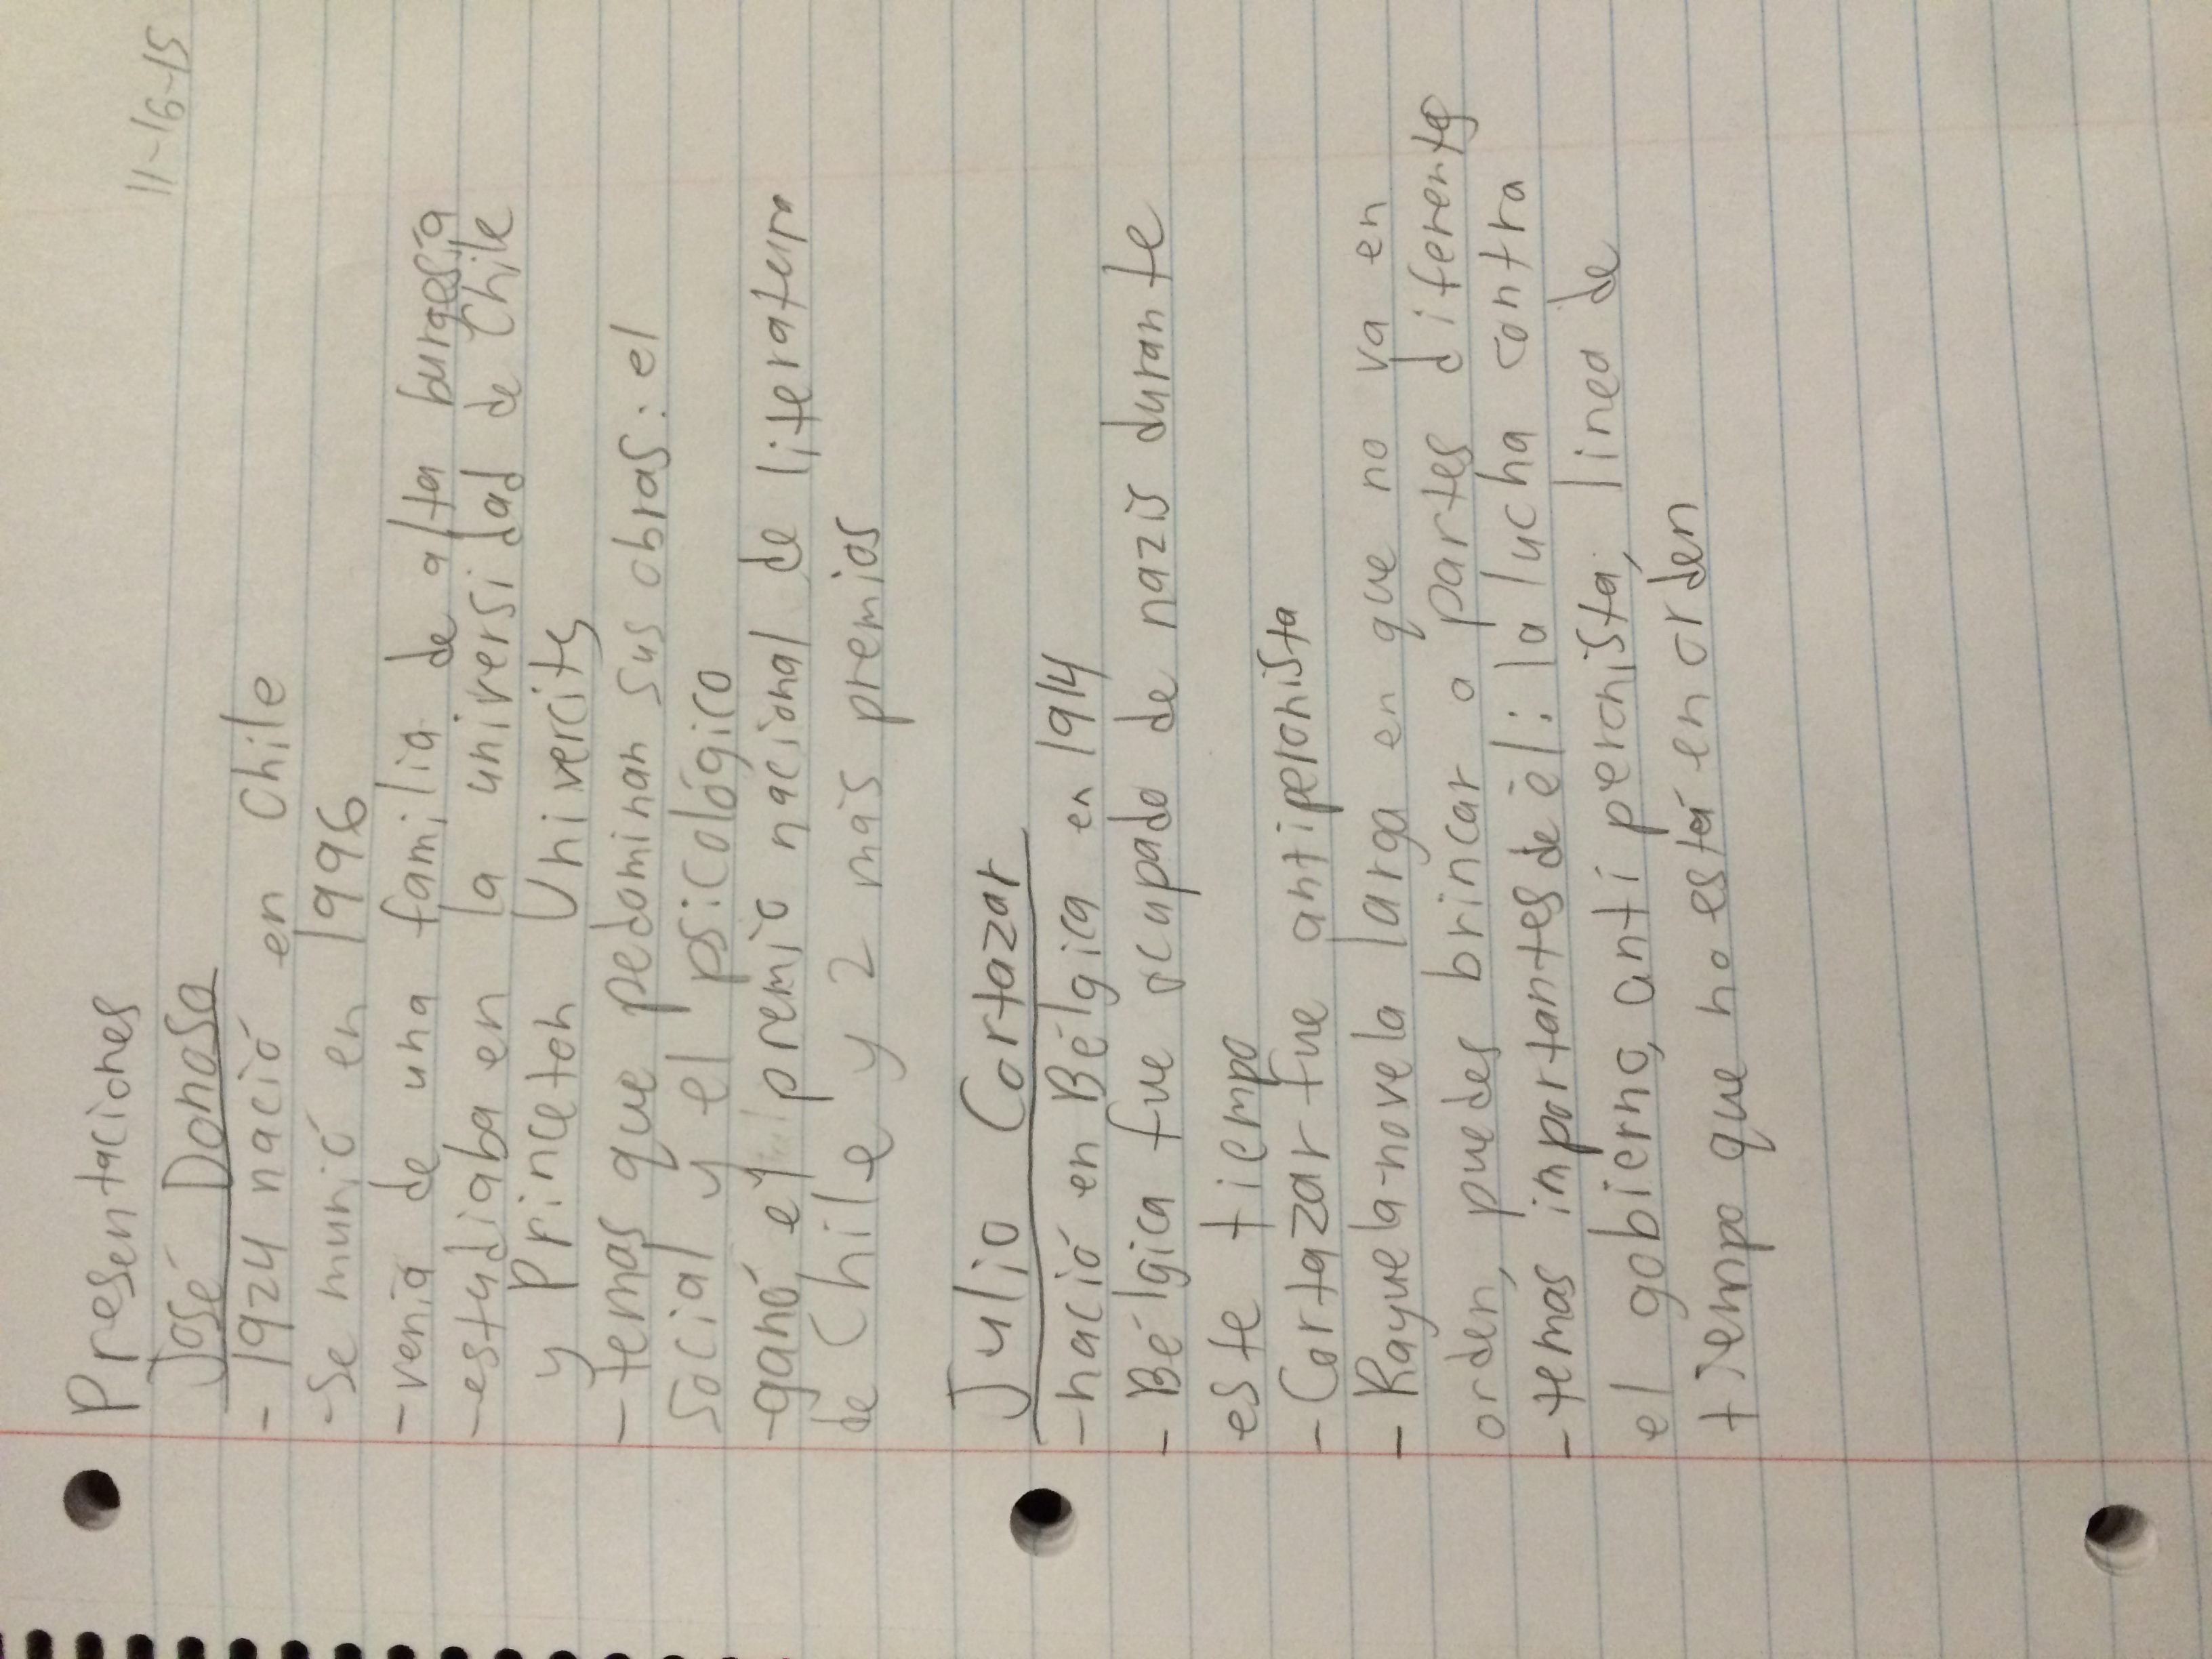 11-16-15
Presentaciones
José Donoso
- 1924 nació en Chile
- Se murió en 1996
- venía de una familia de alta burgesía
- estudiaba en la universidad de Chile
y Princeton Univercity
- temas que pedominan sus obras: el
social y el psicológico
- ganó el premio nacional de literatura
de Chile y 2 más premios
Julio Cortazar
- nació en Bélgica en 1914
- Bélgica fue ocupado de nazis durante
este tiempo
- Cortazar fue antiperonista
- Rayuela-novela larga en que no va en
orden, puedes brincar a partes diferente
- temas importantes de él: la lucha contra
el gobierno, anti peronista, linea de
tiempo que no está en orden